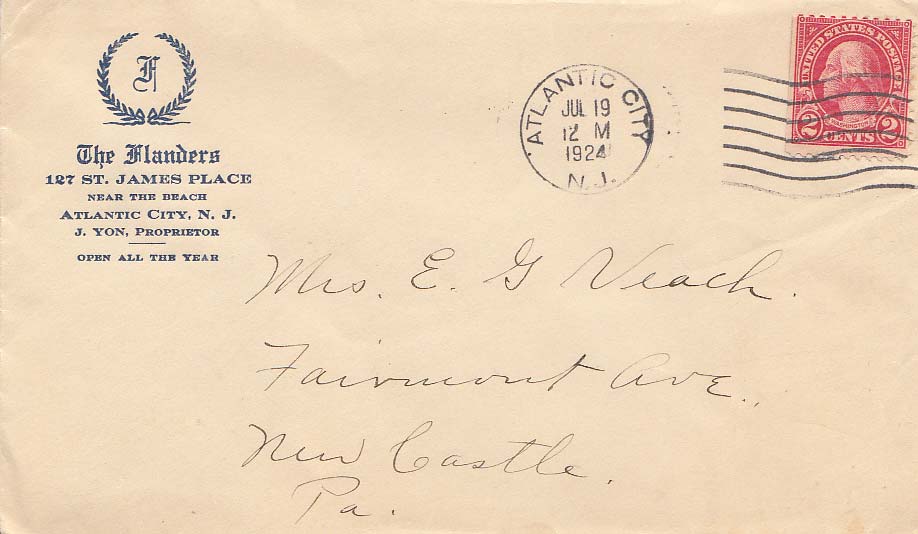 F
The Flanders
127 ST. JAMES PLACE
NEAR THE BEACH
ATLANTIC CITY, N. J.
J. YON, PROPRIETOR
OPEN ALL THE YEAR
ATLANTIC CITY
JUL 19
12 M
1924
N.J.
UNITED STATES POSTAGE
WASHINGTON
2 CENTS 2
Mrs. E. G Veach.
Fairmont Ave.,
New Castle,
Pa.